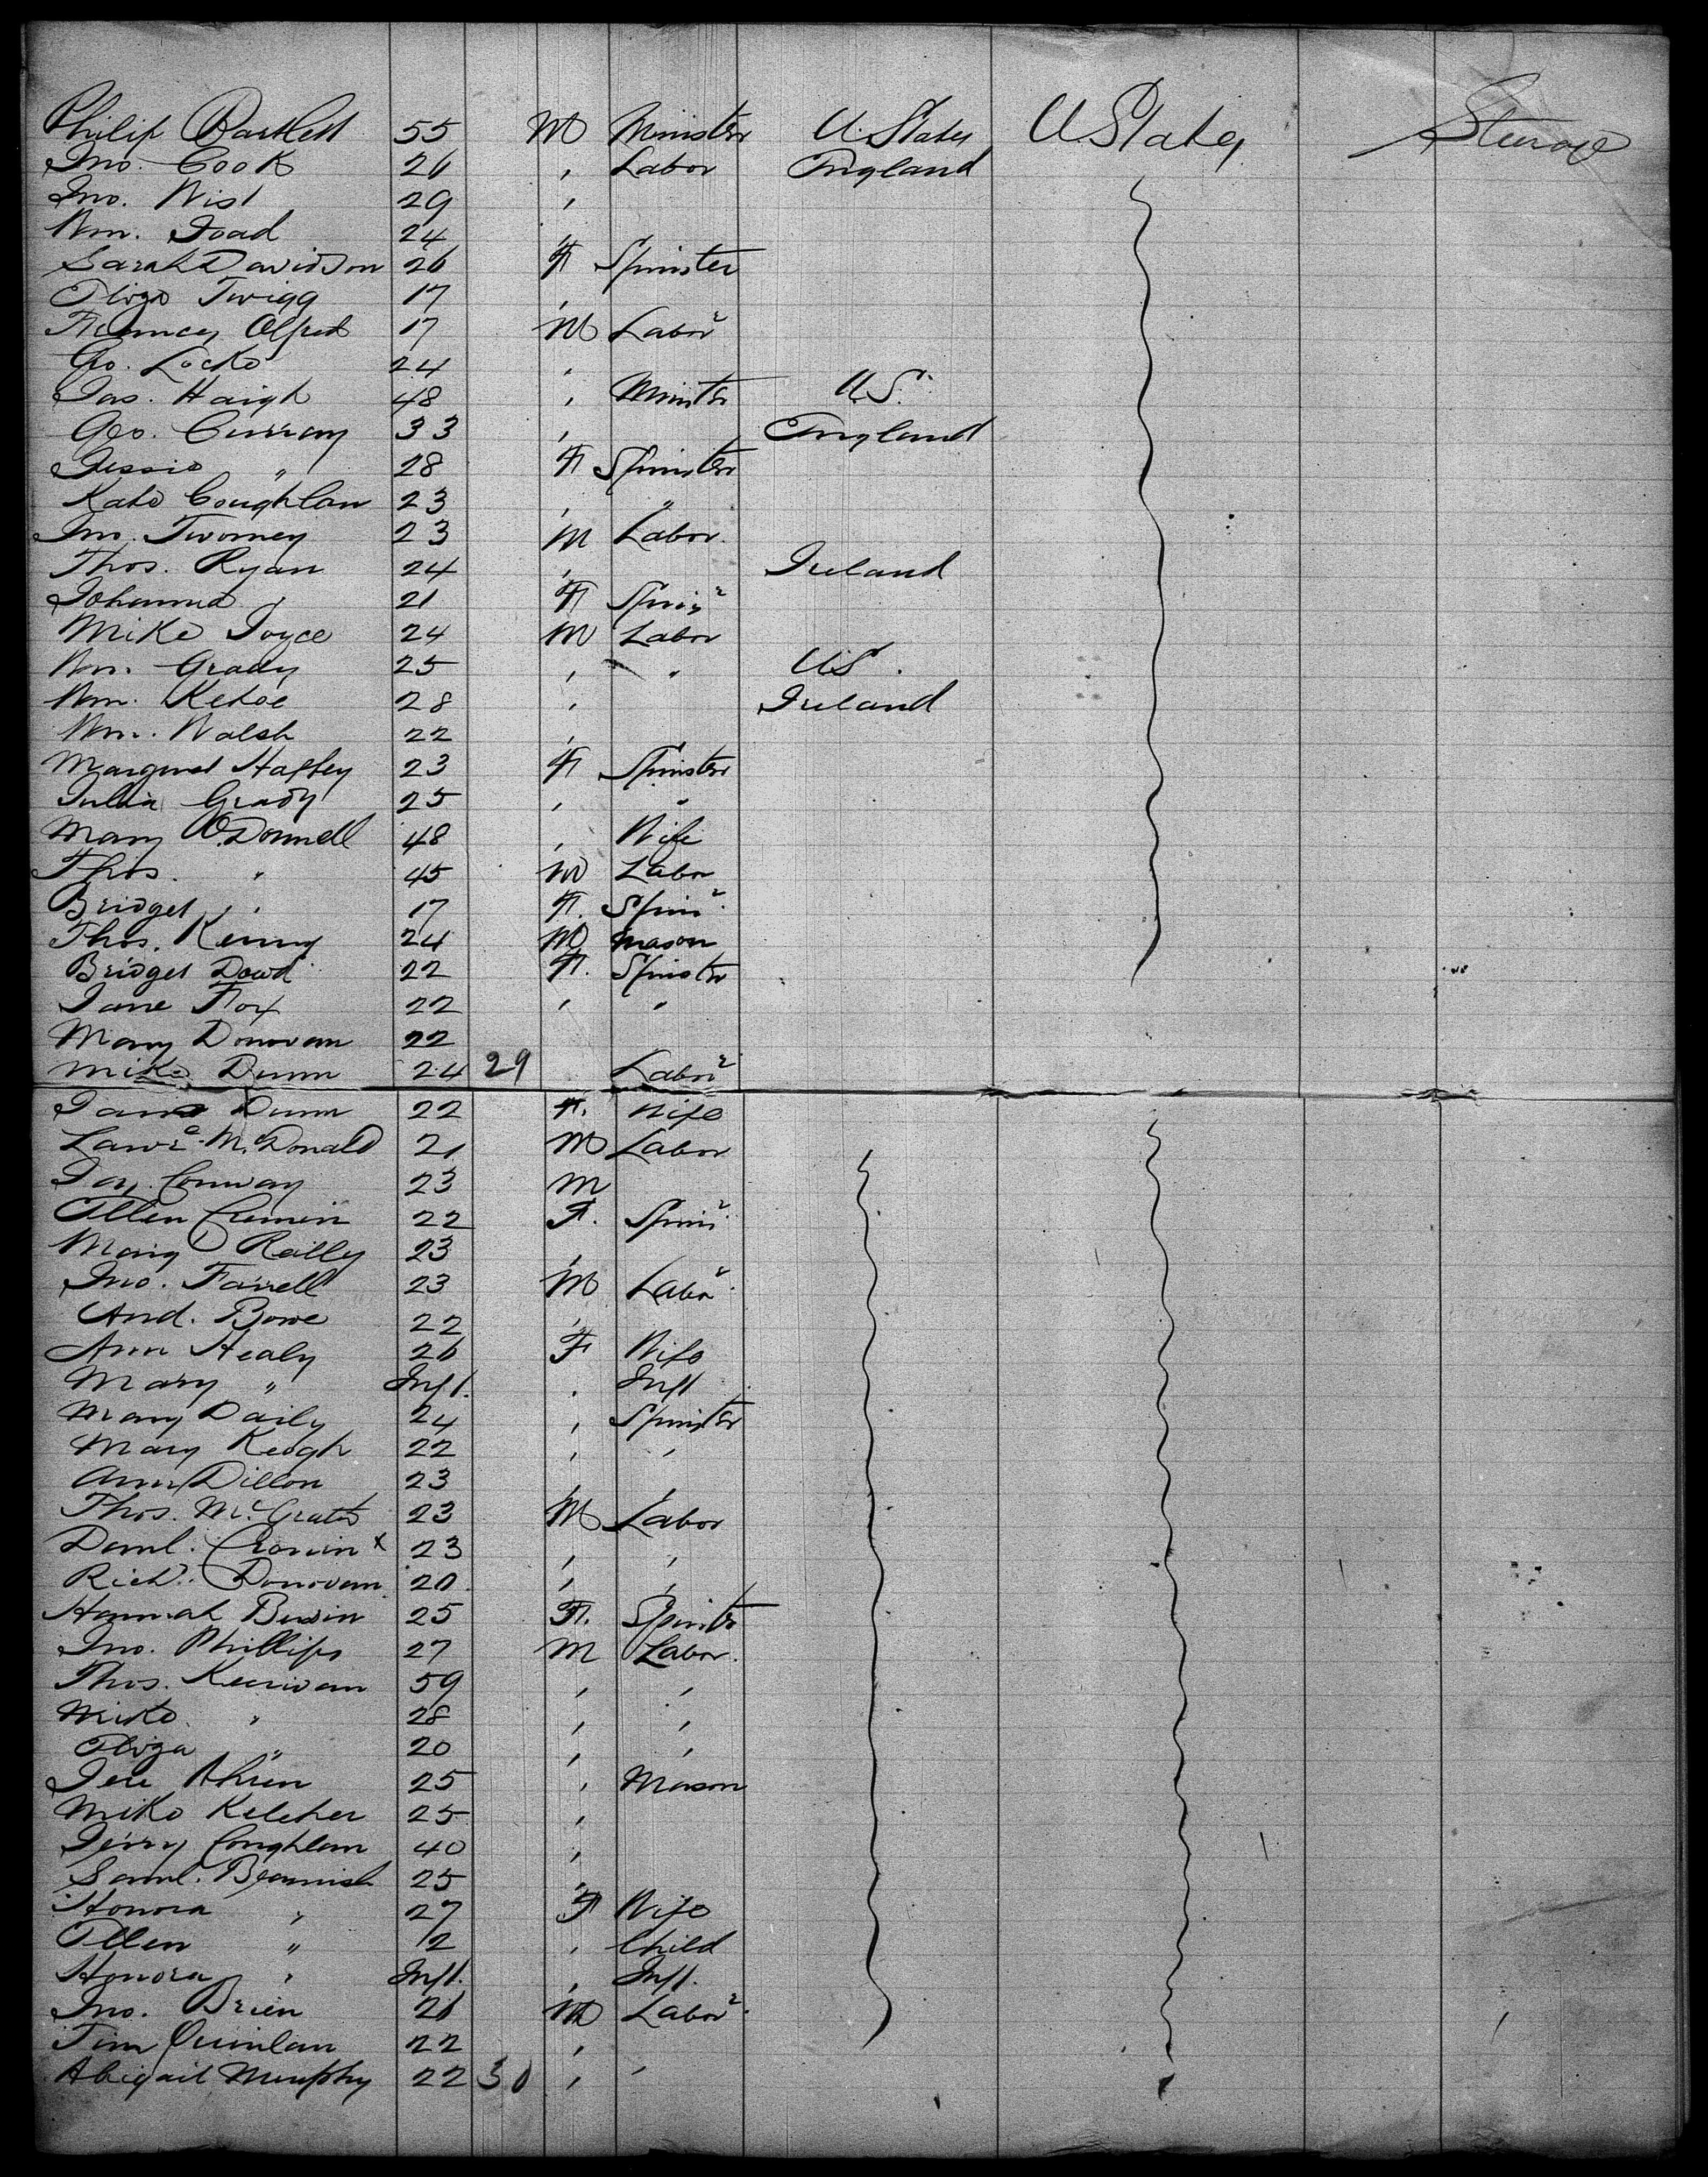 Philip Bartlett 55 M Minister U. States U States Steerage
Jno. Cook 26 , Labor England
Jno. West 29 ,
Wm. Toad 24
Sarah Davidson 26 F Spinster
Eliza Twigg 17 ,
Alfred 17 M Labor
Geo. Locke 24 ,
Jas. Haigh 48 , Ministr U.S.
Geo. Curray 33 , England
Jessie " 28 F Spinster
Kate Coughlan 23 , "
Jno. Twomey 23 M Labor
Thos. Ryan 24 , Ireland
Johanna , 21 F Spinr
Mike Joyce 24 M Labor
Wm. Grady 25 , " U.S.
Wm. Kehoe 28 , Ireland
Wm. Walsh 22 ,
Margaret 23 F Spinster
Julia Grady 25 , "
Mary O'Donnell 48 , Wife
Thos. " 45 M Labor
Bridget " 17 F. Spinr
Thos. Kenny 24 M Mason
Bridget Dowd 22 F. Spinstr
Jane Fox 22 , "
Mary Donovan 22
Mike Dunn 24 29 Labor
Jane Dunn 22 F. Wife
Lawre McDonald 21 M Labor
Jas. Conway 23 M
Ellen Cremin 22 F. Spinr
Mary Reilly 23 ,
Jno. Farrell 23 M Labr
And. Bowe 22 ,
Ann Healy 26 F Wife
Mary " Inft. , Inft
Mary Daily 24 , Spinstr
Mary Keogh 22 , ,
Ann Dillon 23 , ,
Thos. McGrath 23 M Labor
Danl. Cronin x 23 , ,
Richd. Donovan 20 , ,
Hannah 25 F. Spinstr
Jno. Phillips 27 M Labor.
Thos. Kerrivan 59 , ,
Mike " 28 , ,
Eliza " 20 , ,
Jere Ahern 25 , Mason
Mike Keleher 25 ,
Jerry Coughlan 40 ,
Saml. Beamish 25 ,
Honora , 27 F Wife
Ellen " 2 , Child
Honora , Inft. , Inft.
Jno. Brien 21 M Labor
Tim Quinlan 22 ,
Abigail Murphy 22 30 , ,